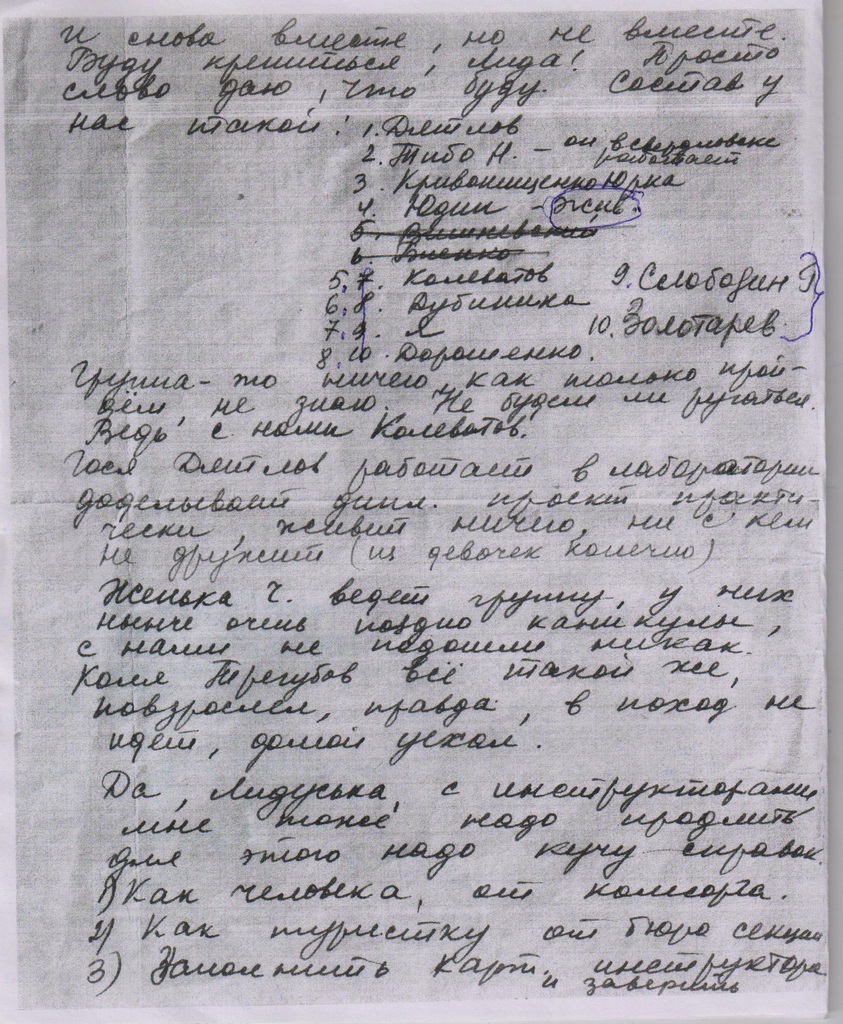 И снова вместе, но не вместе.
Буду крепиться, Лида! Просто
слово даю, что буду. Состав у
нас такой: 1. Дятлов
2. Тибо Н. - он в Свердловске
работает
3. Кривонищенко Юрка
4. Юдин - жив.
5. Вишневский
6. Биенко
5. 7. Колеватов 9. Слободин Р
6. 8. Дубинина
7. 9. Я 10. Золотарев.
8. 10. Дорошенко.
Группа-то ничего, как только прой-
дём, не знаю. Не будем ли ругаться.
Ведь с нами Колеватов.
Гося Дятлов работает в лаборатории
доделывает дипл. проект практи-
чески, живёт ничего, ни с кем
не дружит (из девочек конечно)
Женька Ч. ведет группу, у них
нынче очень поздно каникулы,
с нами не подошли никак.
Коля Трегубов всё такой же,
повзрослел, правда, в поход не
идет, домой уехал.
Да, Лидуська, с инструкторами
мне тоже надо продлить
для этого надо кучу справок.
1) Как человека, от комсорга.
2) Как туристку от бюро секции
3) Заполнить карт. инструктора
и заверить